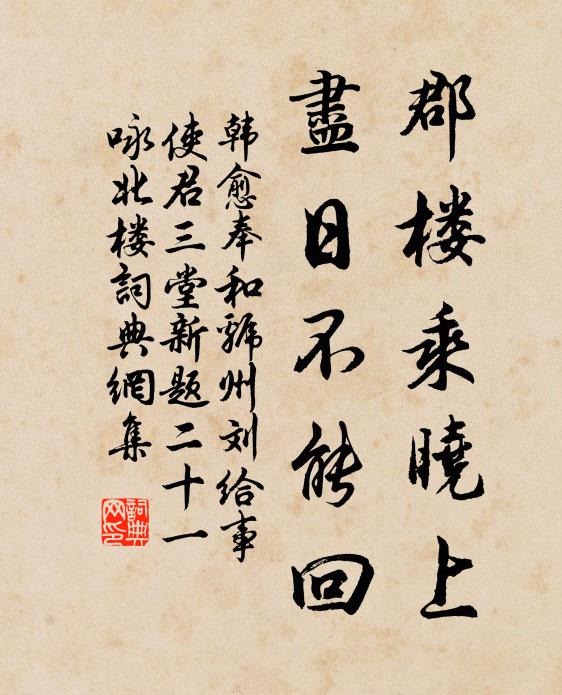 郡楼乘曉上
盡日不能回
韩愈奉和虢州刘给事
使君三堂新题二十一
咏北楼詞典網集
詞典网印